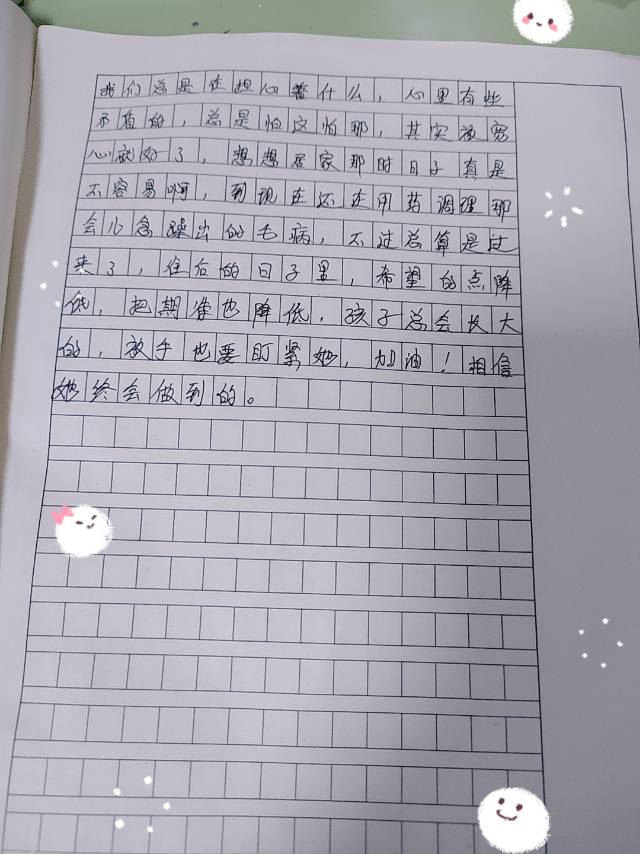 我们总是在担心着什么，心里有些
矛盾的，总是怕这怕那，其实放宽
心就好了，想想居家那时日子真是
不容易啊，到现在还在用药调理那
会儿急躁出的毛病，不过总算是过
来了，往后的日子里，希望的点降
低，把期准也降低，孩子总会长大
的，放手也要盯紧她，加油！相信
她终会做到的。